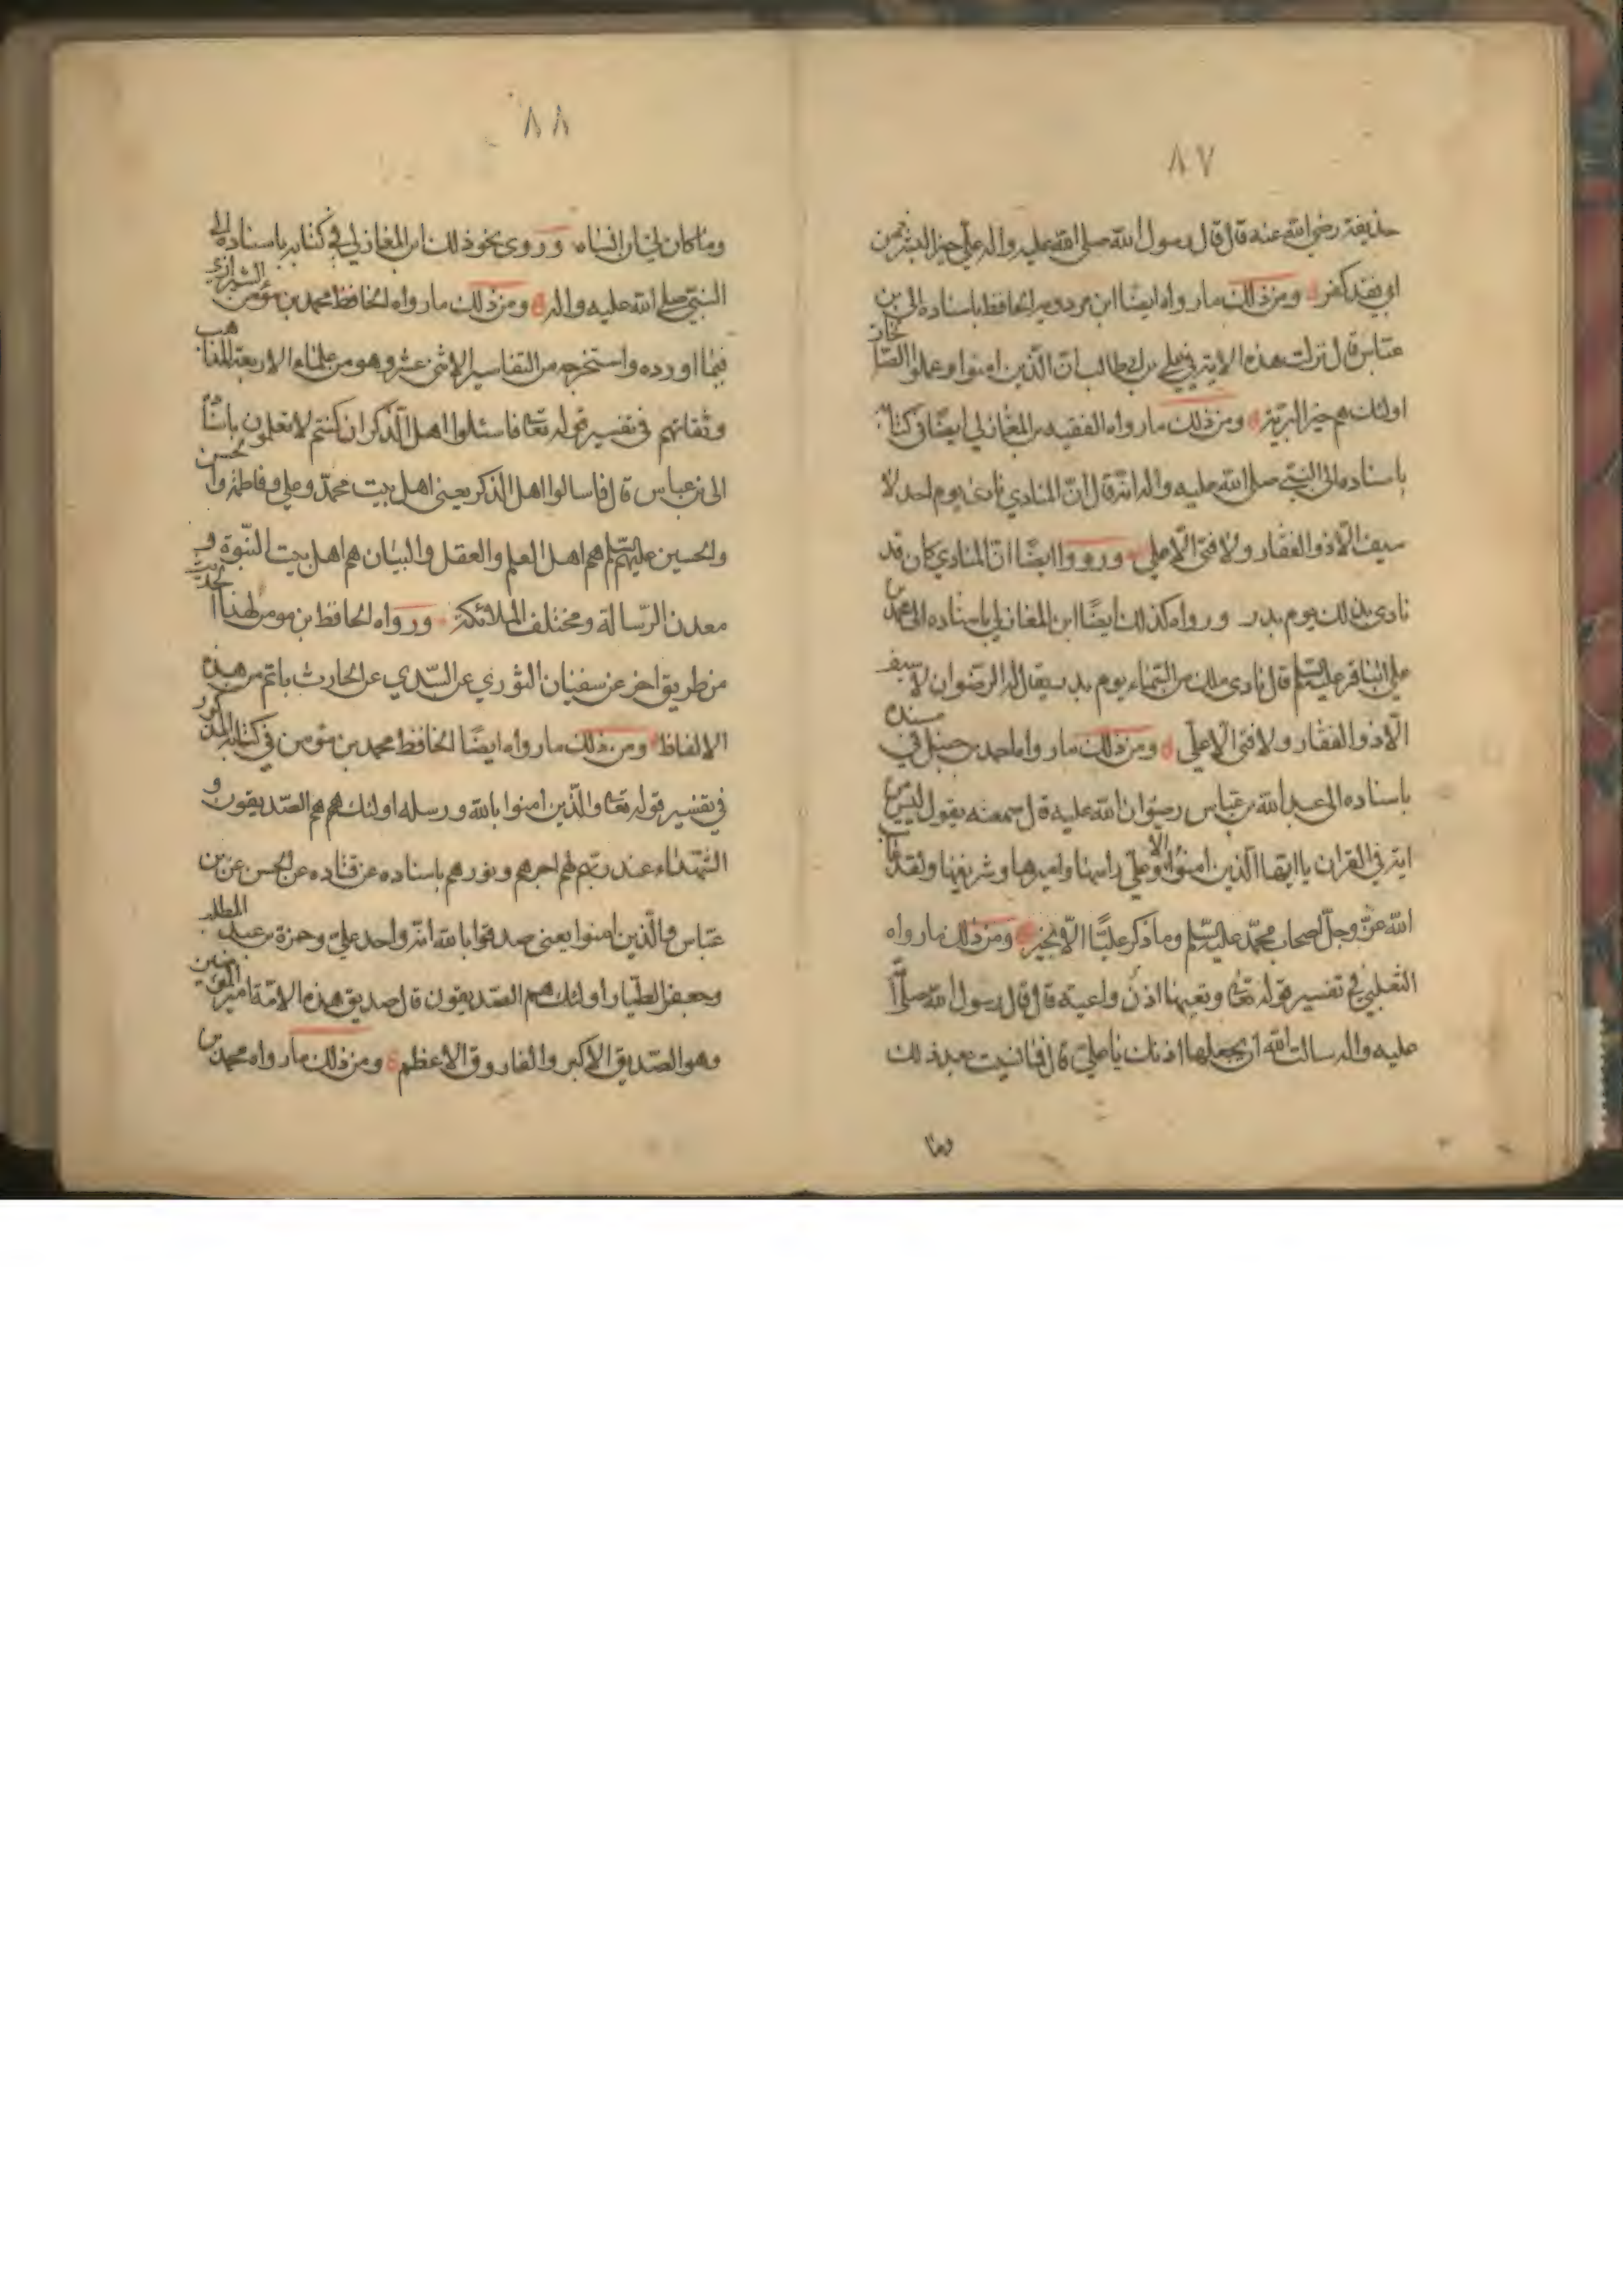 ٨٧
حذيفة رضي الله عنه قال قال رسول الله صلى الله عليه واله علي خير البشر فمن
ابى فقد كفر ومن ذلك ما رواه ايضًا ابن مردويه الحافظ باسناده الى بن
عباس قال نزلت هذه الاية في علي بن ابي طالب ان الذين امنوا وعملوا الصالحات
اولئك هم خير البرية ومن ذلك ما رواه الفقيه بن المغازلي ايضًا في كتابه
باسناده الى النبي صلى الله عليه واله انه قال ان المنادي نادى يوم احد لا
سيف الا ذو الفقار ولا فتى الا علي ورووا ايضًا ان المنادي كان قد
نادى بذلك يوم بدر ورواه كذلك ايضًا ابن المغازلي باسناده الى محمد بن
علي الباقر عليه السلم قال نادى ملك من السماء يوم بدر يقال له الرضوان لا سيف
الا ذو الفقار ولا فتى الا علي ومن ذلك ما رواه احمد بن حنبل في مسنده
باسناده الى عبد الله بن عباس رضوان الله عليه قال سمعته يقول ليس من
اية في القران يا ايها الذين امنوا الا وعلي راسها واميرها وشريفها ولقد عاتب
الله عز وجل اصحاب محمد عليه السلم وما ذكر عليًا الا بخير ومن ذلك ما رواه
الثعلبي في تفسير قوله تعا وتعيها اذن واعية قال قال رسول الله صلى الله
عليه واله سالت الله ان يجعلها اذنك يا علي قال فما نسيت بعد ذلك
وما
٨٨
وما كان لي ان انساه وروى نحو ذلك ابن المغازلي في كتابه باسناده الى
النبي صلى الله عليه واله ومن ذلك ما رواه الحافظ محمد بن مؤمن الشيرازي
فيما اورده واستخرجه من التفاسير الاثنى عشر وهو من علماء الاربعة المذاهب
وثقاتهم في تفسير قوله تعا فاسئلوا اهل الذكر ان كنتم لا تعلمون باسناده
الى بن عباس قال فاسالوا اهل الذكر يعني اهل بيت محمد وعلي وفاطمة والحسن
والحسين عليهم السلم هم اهل العلم والعقل والبيان هم اهل بيت النبوة و
معدن الرسالة ومختلف الملائكة ورواه الحافظ بن مومن لهذا الحديث
من طريق اخر عن سفيان الثوري عن السدي عن الحارث باتم من هذه
الالفاظ ومن ذلك ما رواه ايضًا الحافظ محمد بن مؤمن في كتابه المذكور
في تفسير قوله تعا والذين امنوا بالله ورسله اولئك هم الصديقون و
الشهداء عند ربهم لهم اجرهم ونورهم باسناده عن قتاده عن الحسن عن بن
عباس والذين امنوا يعني صدقوا بالله انه واحد علي وحمزة بن عبد المطلب
وجعفر الطيار اولئك هم الصديقون قال صديق هذه الامة امير المؤمنين
وهو الصديق الاكبر والفاروق الاعظم ومن ذلك ما رواه محمد بن